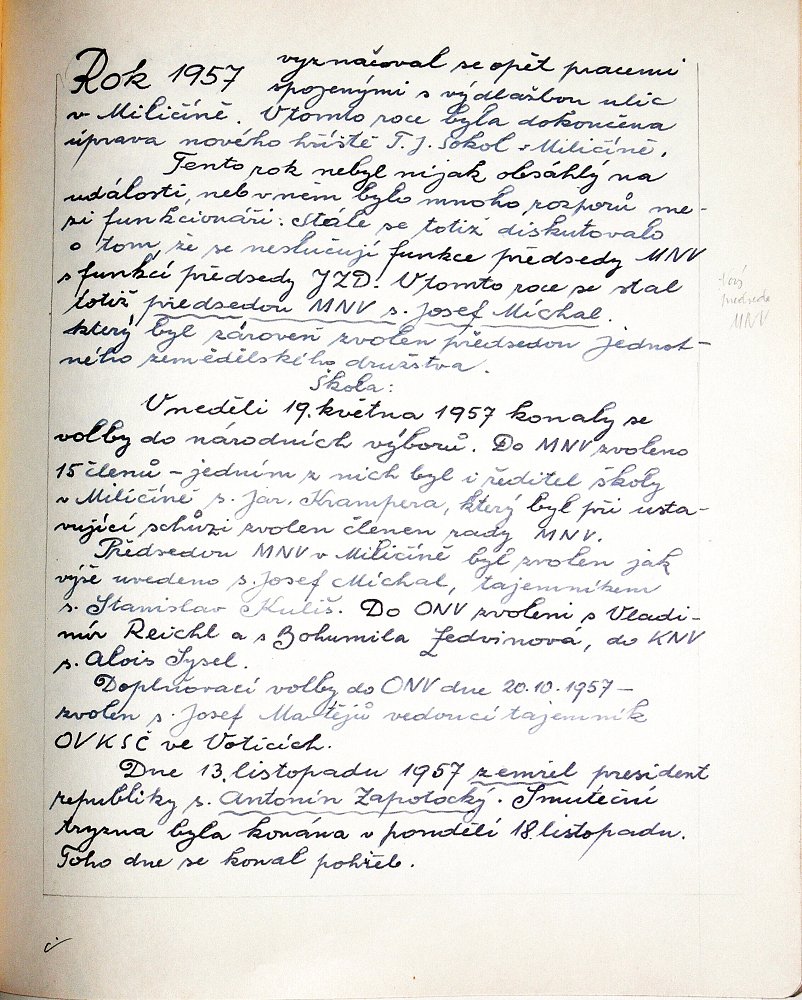 Rok 1957 vyznačoval se opět pracemi
spojenými s výdlažbou ulic
v Miličíně. V tomto roce byla dokončena
úprava nového hřiště T. J. Sokol v Miličíně.
Tento rok nebyl nijak obsáhlý na
události, neb v něm bylo mnoho rozporů me-
zi funkcionáři. Stále se totiž diskutovalo
o tom, že se neslučují funkce předsedy MNV
s funkcí předsedy JZD. V tomto roce se stal
totiž předsedou MNV s. Josef Míchal.
který byl zároveň zvolen předsedou Jednot-
ného zemědělského družstva.
Škola:
V neděli 19. května 1957 konaly se
volby do národních výborů. Do MNV zvoleno
15 členů – jedním z nich byl i ředitel školy
v Miličíně s. Jar. Krampera, který byl při usta-
vující schůzi zvolen členem rady MNV.
Předsedou MNV v Miličíně byl zvolen jak
výše uvedeno s. Josef Míchal, tajemníkem
s. Stanislav Kuliš. Do ONV zvoleni s Vladi-
mír Reichl a s Bohumila Zedvinová, do KNV
s. Alois Sysel.
Doplňovací volby do ONV dne 20.10.1957 –
zvolen s. Josef Matějů vedoucí tajemník
OVKSČ ve Voticích.
Dne 13. listopadu 1957 zemřel president
republiky s. Antonín Zápotocký. Smuteční
tryzna byla konána v pondělí 18. listopadu.
Toho dne se konal pohřeb.
předseda
MNV